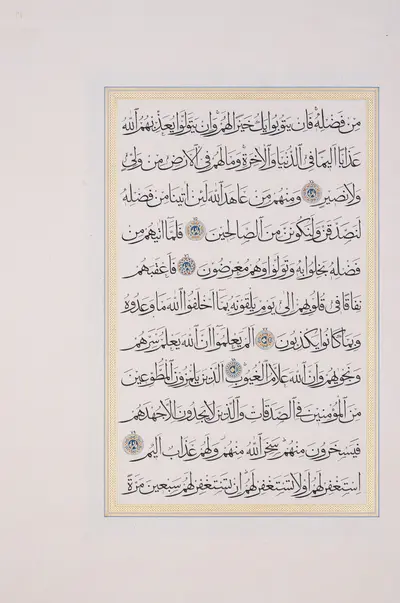 مِن فَضْلِهِ فَإِن يَتُوبُوا يَكُ خَيْرًا لَهُمْ وَإِن يَتَوَلَّوْا يُعَذِّبْهُمُ اللَّهُ
عَذَابًا أَلِيمًا فِي الدُّنْيَا وَالْآخِرَةِ وَمَا لَهُمْ فِي الْأَرْضِ مِن وَلِيٍّ
وَلَا نَصِيرٍ وَمِنْهُم مَّنْ عَاهَدَ اللَّهَ لَئِنْ آتَيْنَا مِن فَضْلِهِ
لَنَصَّدَّقَنَّ وَلَنَكُونَنَّ مِنَ الصَّالِحِينَ فَلَمَّا آتَاهُم مِّن
فَضْلِهِ بَخِلُوا بِهِ وَتَوَلَّوْا وَهُم مُّعْرِضُونَ فَأَعْقَبَهُمْ
نِفَاقًا فِي قُلُوبِهِمْ إِلَى يَوْمِ يَلْقَوْنَهُ بِمَا أَخْلَفُوا اللَّهَ مَا وَعَدُوهُ
وَبِمَا كَانُوا يَكْذِبُونَ أَلَمْ يَعْلَمُوا أَنَّ اللَّهَ يَعْلَمُ سِرَّهُمْ
وَنَجْوَاهُمْ وَأَنَّ اللَّهَ عَلَّامُ الْغُيُوبِ الَّذِينَ يَلْمِزُونَ الْمُطَّوِّعِينَ
مِنَ الْمُؤْمِنِينَ فِي الصَّدَقَاتِ وَالَّذِينَ لَا يَجِدُونَ إِلَّا جُهْدَهُمْ
فَيَسْخَرُونَ مِنْهُمْ سَخِرَ اللَّهُ مِنْهُمْ وَلَهُمْ عَذَابٌ أَلِيمٌ
اسْتَغْفِرْ لَهُمْ أَوْ لَا تَسْتَغْفِرْ لَهُمْ إِن تَسْتَغْفِرْ لَهُمْ سَبْعِينَ مَرَّةً